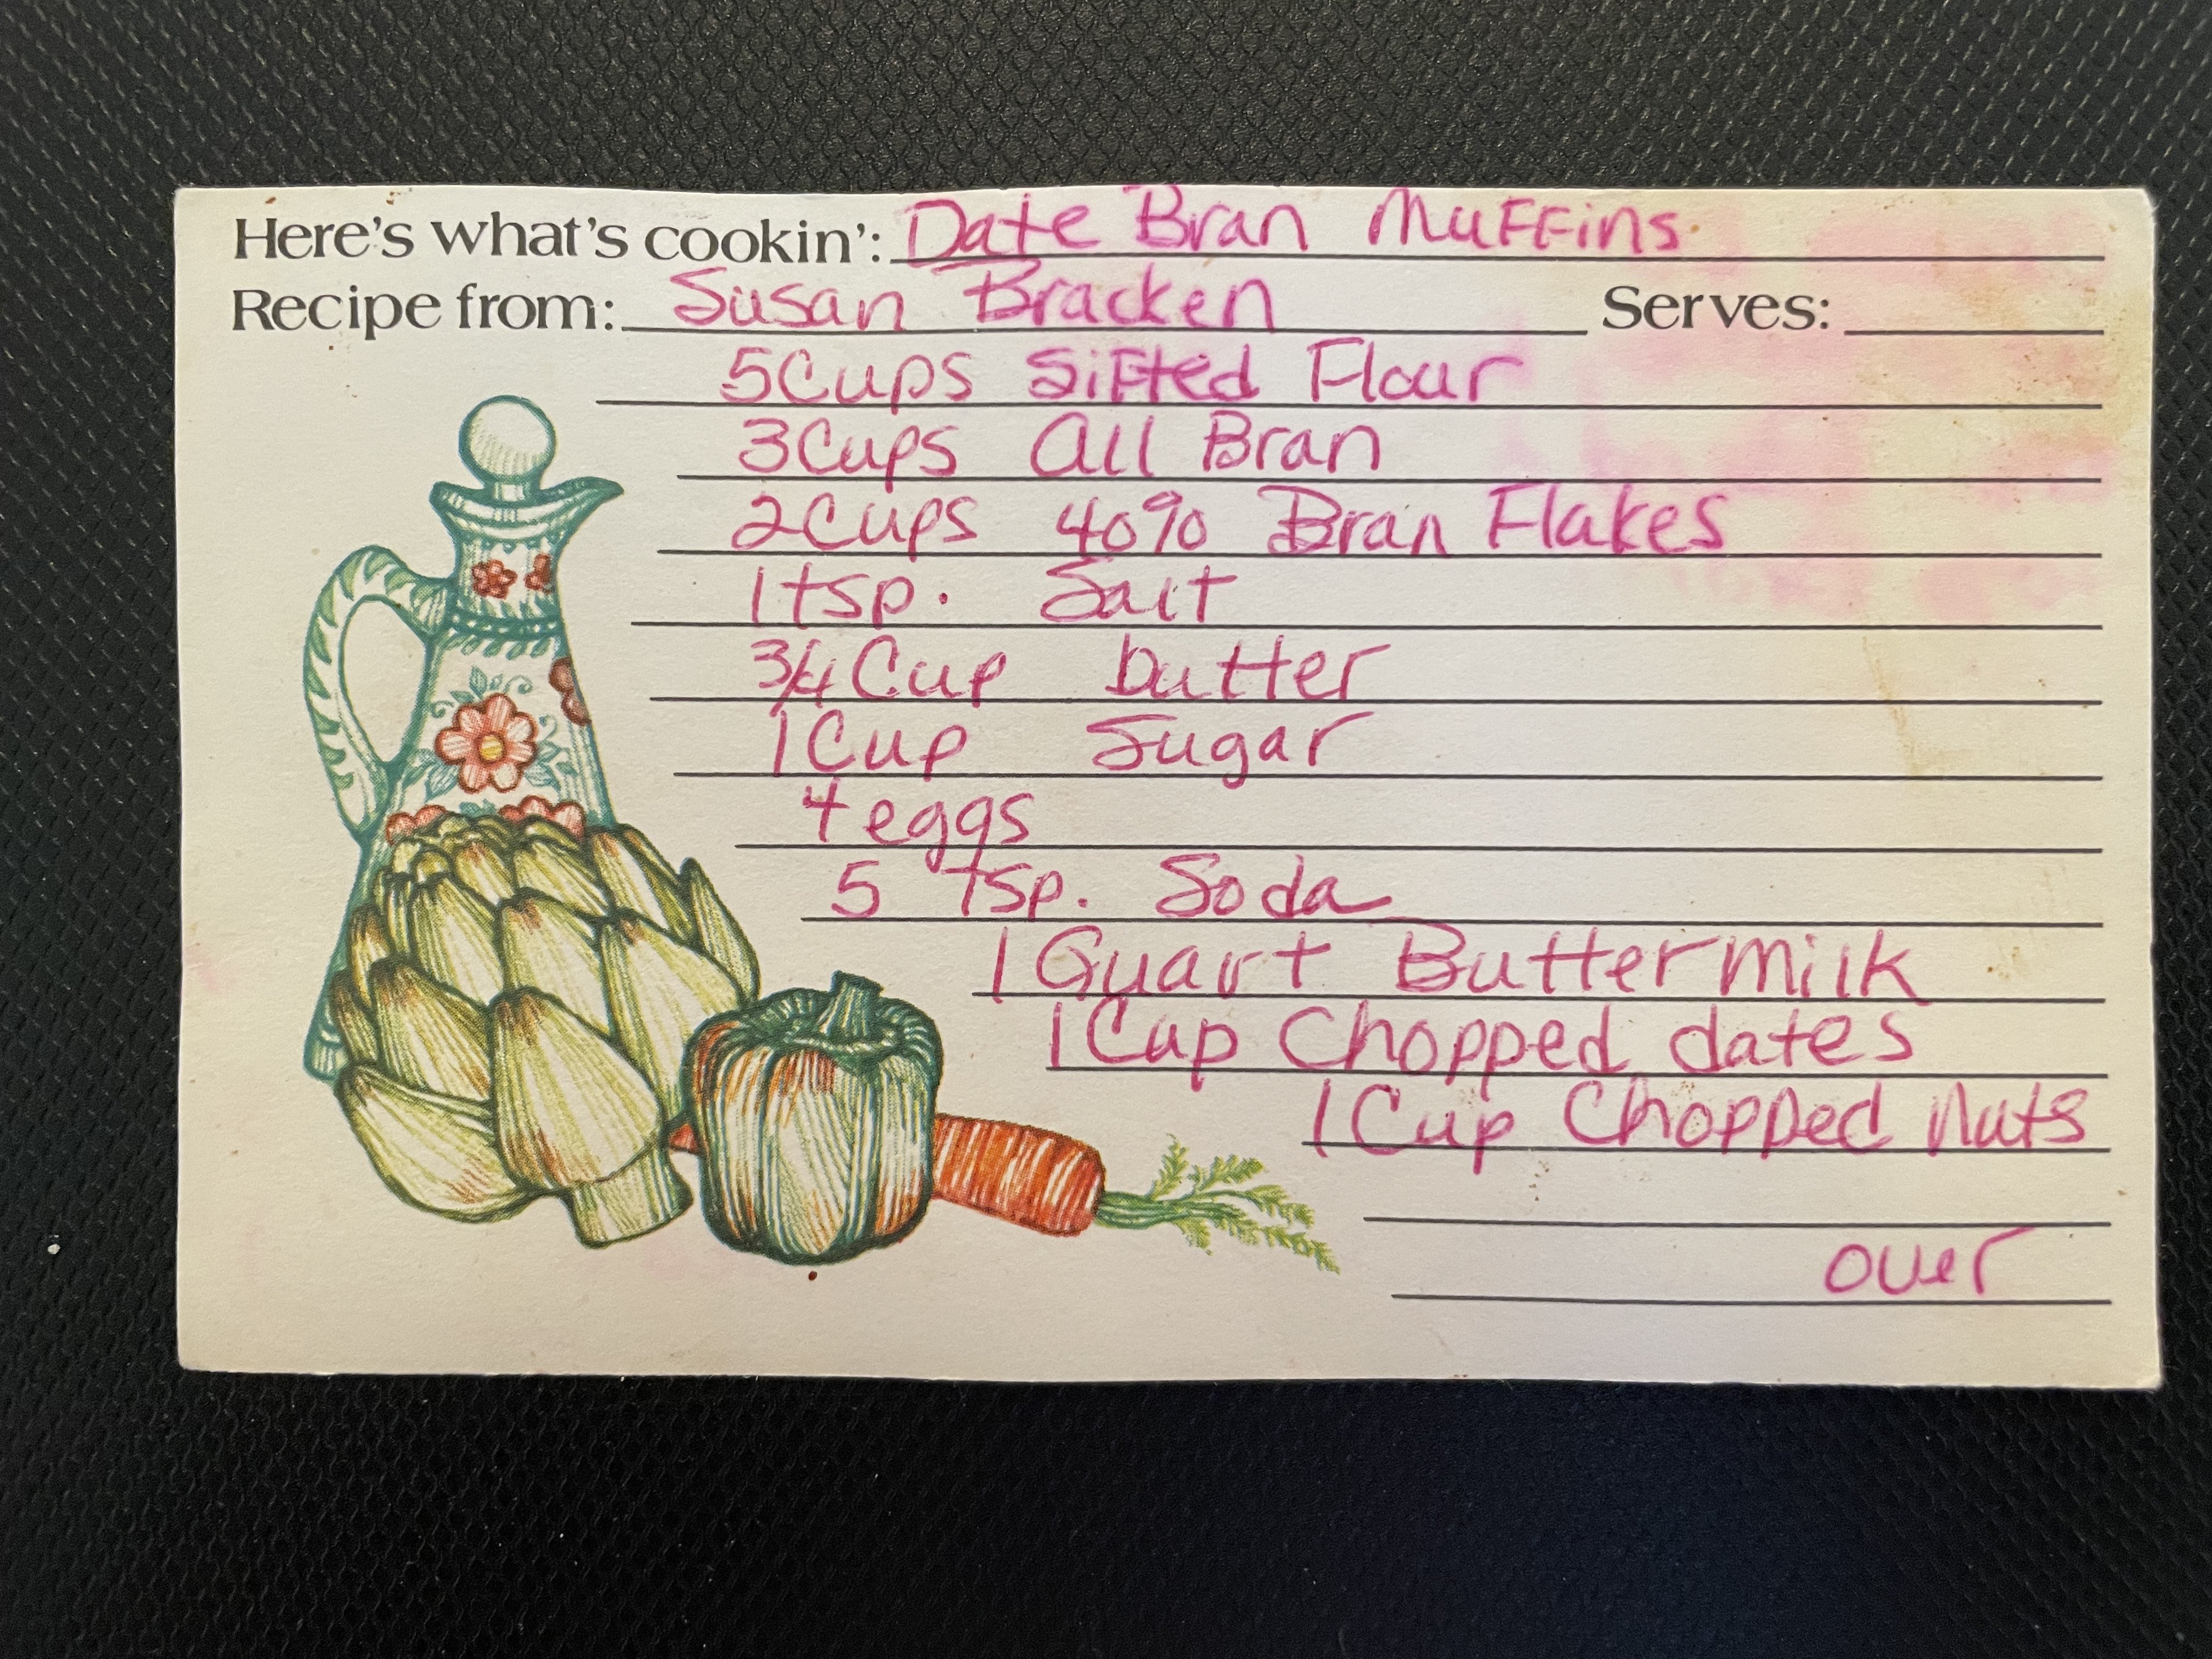 Here's what's cookin': Date Bran Muffins
Recipe from: Susan Bracken Serves:
5 Cups Sifted Flour
3 Cups All Bran
2 Cups 40% Bran Flakes
1 tsp. Salt
3/4 Cup butter
1 Cup Sugar
4 eggs
5 Tsp. Soda
1 Quart Buttermilk
1 Cup Chopped dates
1 Cup Chopped Nuts
over